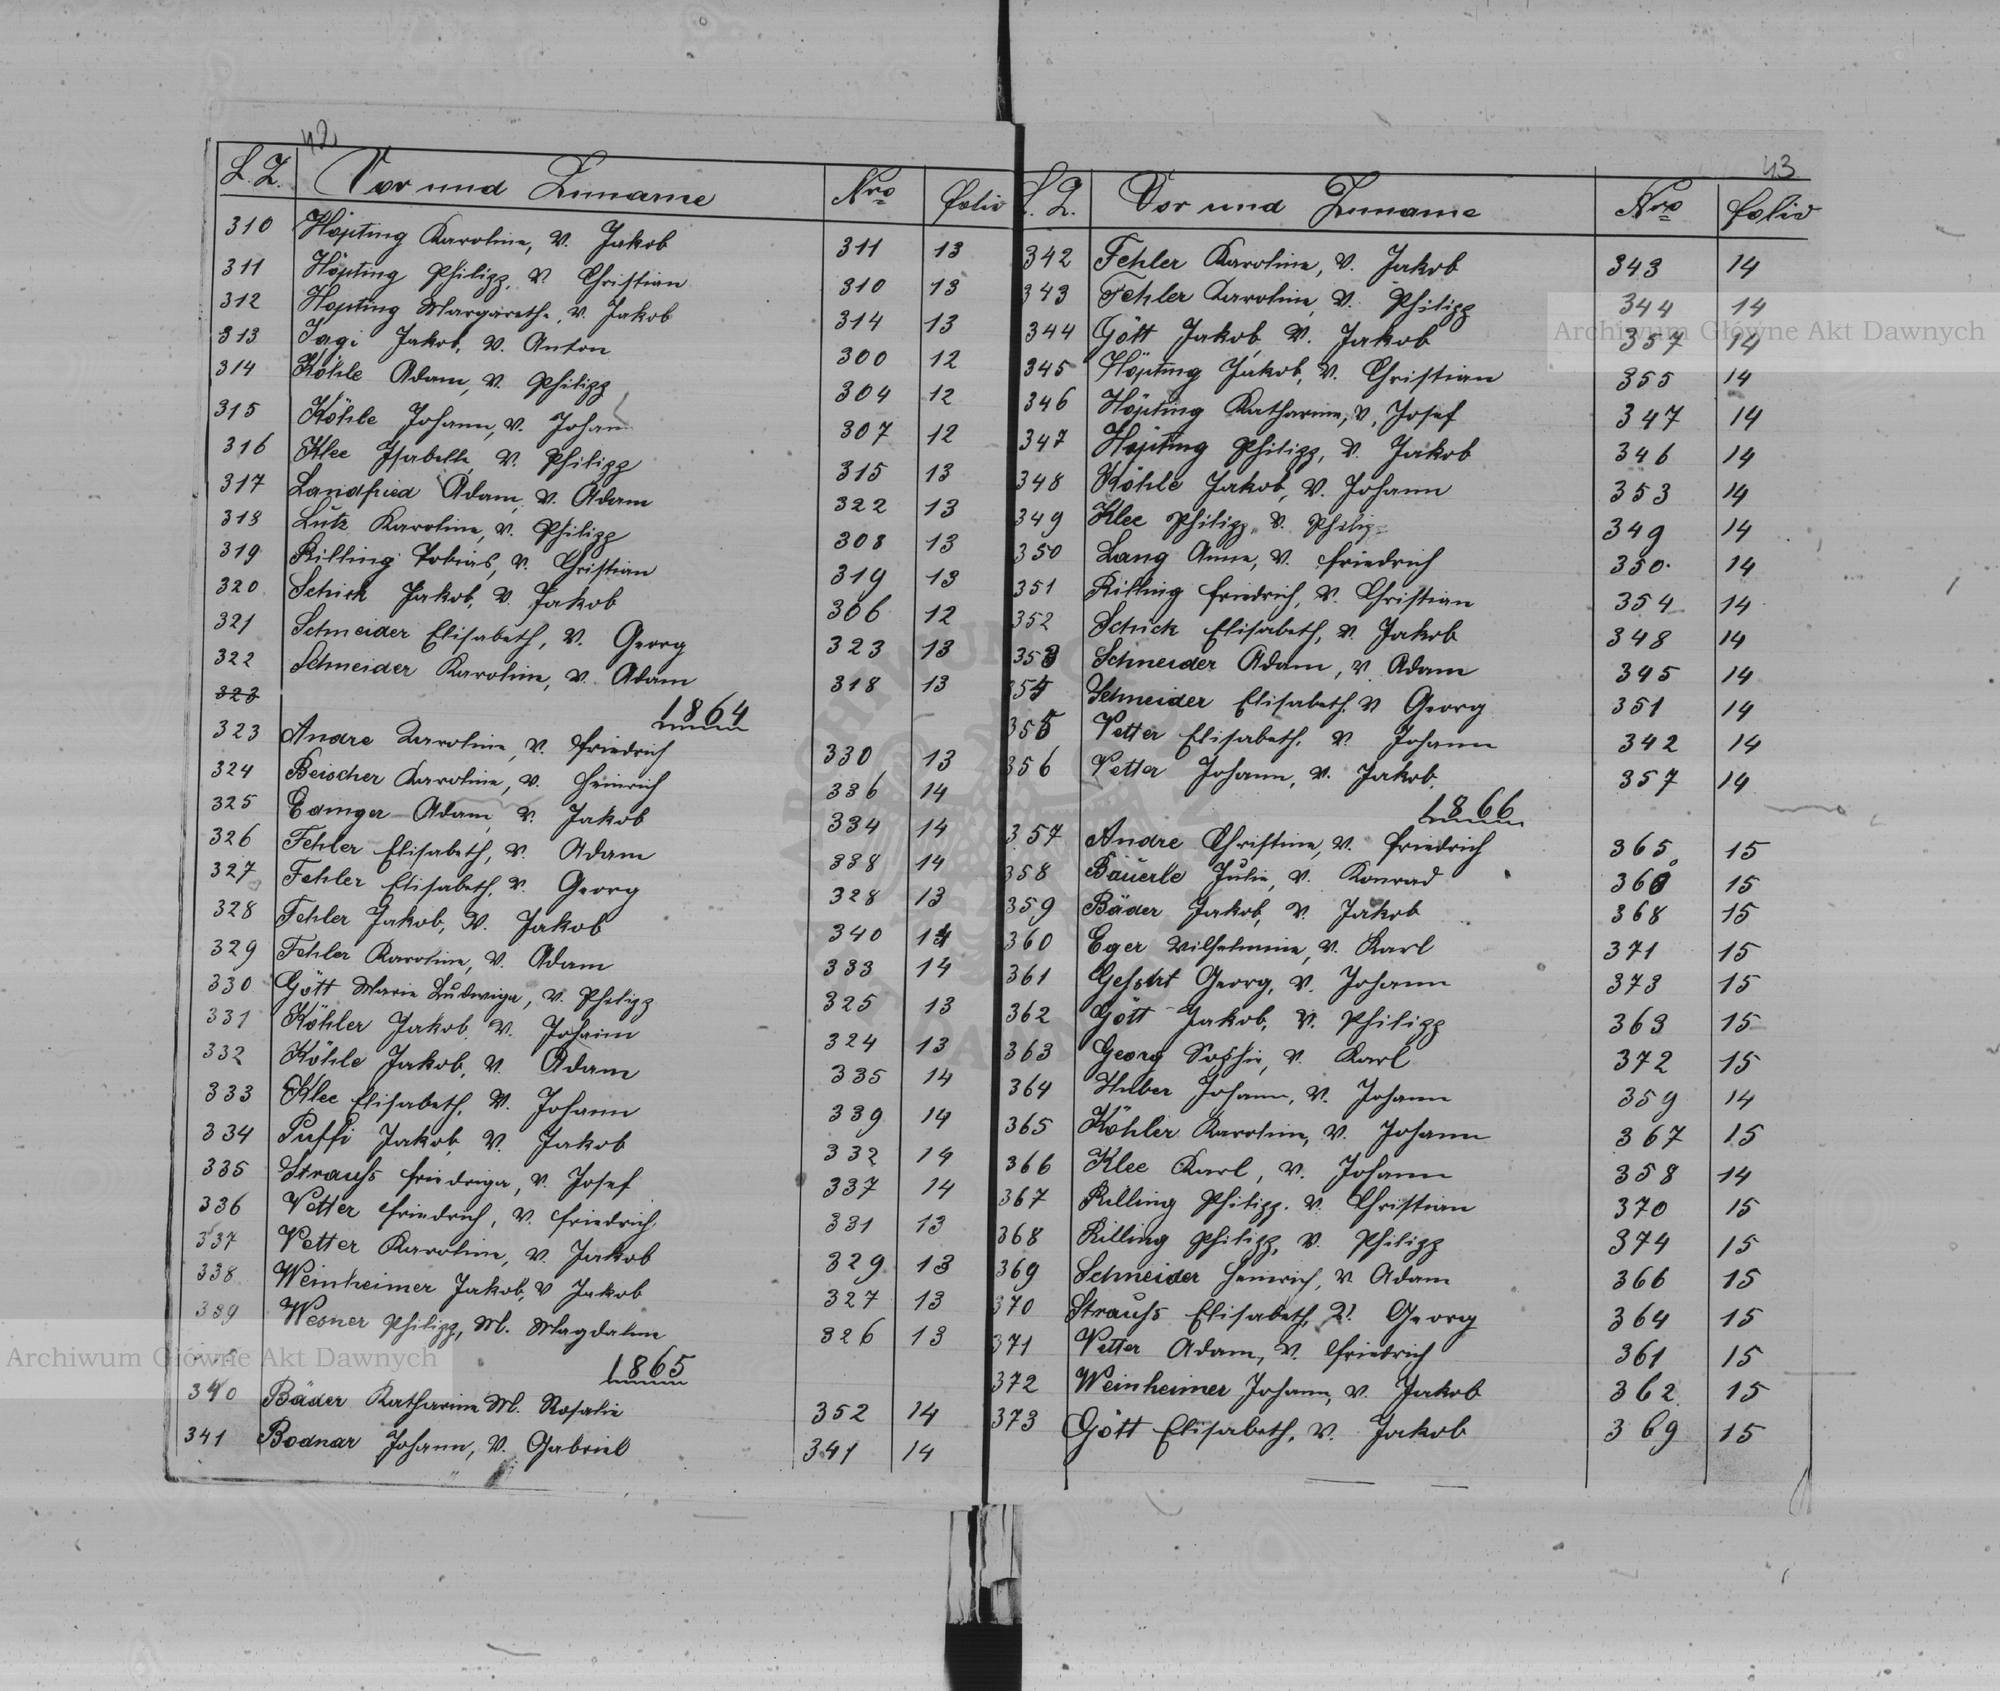 42
L. Z. Vor und Zuname Nro folio
310 Höpting Karoline, V. Jakob 311 13
311 Höpting Philipp, V. Christian 310 13
312 Höpting Margarethe, V. Jakob 314 13
313 Jagi Jakob, V. Anton 300 12
314 Köhle Adam, V. Philipp 304 12
315 Köhle Johann, V. Johann 307 12
316 Klee Isabella, V. Philipp 315 13
317 Landfried Adam, V. Adam 322 13
318 Lutz Karoline, V. Philipp 308 13
319 Rilling Tobias, V. Christian 319 13
320 Schick Jakob, V. Jakob 306 12
321 Schneider Elisabeth, V. Georg 323 13
322 Schneider Karoline, V. Adam 318 13
323
1864
323 Andre Karoline, V. Friedrich 330 13
324 Beischer Karoline, V. Heinrich 336 14
325 Edinger Adam, V. Jakob 334 14
326 Fehler Elisabeth, V. Adam 338 14
327 Fehler Elisabeth, V. Georg 328 13
328 Fehler Jakob, V. Jakob 340 14
329 Fehler Karoline, V. Adam 333 14
330 Gött Marie Ludwiga, V. Philipp 325 13
331 Köhler Jakob, V. Johann 324 13
332 Köhle Jakob, V. Adam 335 14
333 Klee Elisabeth, V. Johann 339 14
334 Puffi Jakob, V. Jakob 332 14
335 Strauhs Friedriga, V. Josef 337 14
336 Vetter Friedrich, V. Friedrich 331 13
337 Vetter Karoline, V. Jakob 329 13
338 Weinheimer Jakob, V. Jakob 327 13
339 Wesner Philipp, M. Magdalene 326 13
1865
340 Bäder Katharine M. Rosalie 352 14
341 Bodnar Johann, V. Gabriel 341 14
43
L. Z. Vor und Zuname Nro folio
342 Fehler Karoline, V. Jakob 343 14
343 Fehler Karoline, V. Philipp 344 14
344 Gött Jakob, V. Jakob 357 14
345 Höpting Jakob, V. Christian 355 14
346 Höpting Katharine, V. Josef 347 14
347 Höpting Philipp, V. Jakob 346 14
348 Köhle Jakob, V. Johann 353 14
349 Klee Philipp, V. Philipp 349 14
350 Lang Anna, V. Friedrich 350 14
351 Rilling Friedrich, V. Christian 354 14
352 Schick Elisabeth, V. Jakob 348 14
353 Schneider Adam, V. Adam 345 14
354 Schneider Elisabeth, V. Georg 351 14
355 Vetter Elisabeth, V. Johann 342 14
356 Vetter Johann, V. Jakob 357 14
1866
357 Andre Christine, V. Friedrich 365 15
358 Bäuerle Julie, V. Konrad 360 15
359 Bäder Jakob, V. Jakob 368 15
360 Eger Wilhelmine, V. Karl 371 15
361 Georg, V. Johann 373 15
362 Gött Jakob, V. Philipp 363 15
363 Georg Sophie, V. Karl 372 15
364 Huber Johann, V. Johann 359 14
365 Köhler Karoline, V. Johann 367 15
366 Klee Karl, V. Johann 358 14
367 Rilling Philipp, V. Christian 370 15
368 Rilling Philipp, V. Philipp 374 15
369 Schneider Heinrich, V. Adam 366 15
370 Strauhs Elisabeth, V. Georg 364 15
371 Vetter Adam, V. Friedrich 361 15
372 Weinheimer Johann, V. Jakob 362 15
373 Gött Elisabeth, V. Jakob 369 15
Archiwum Główne Akt Dawnych
Archiwum Główne Akt Dawnych